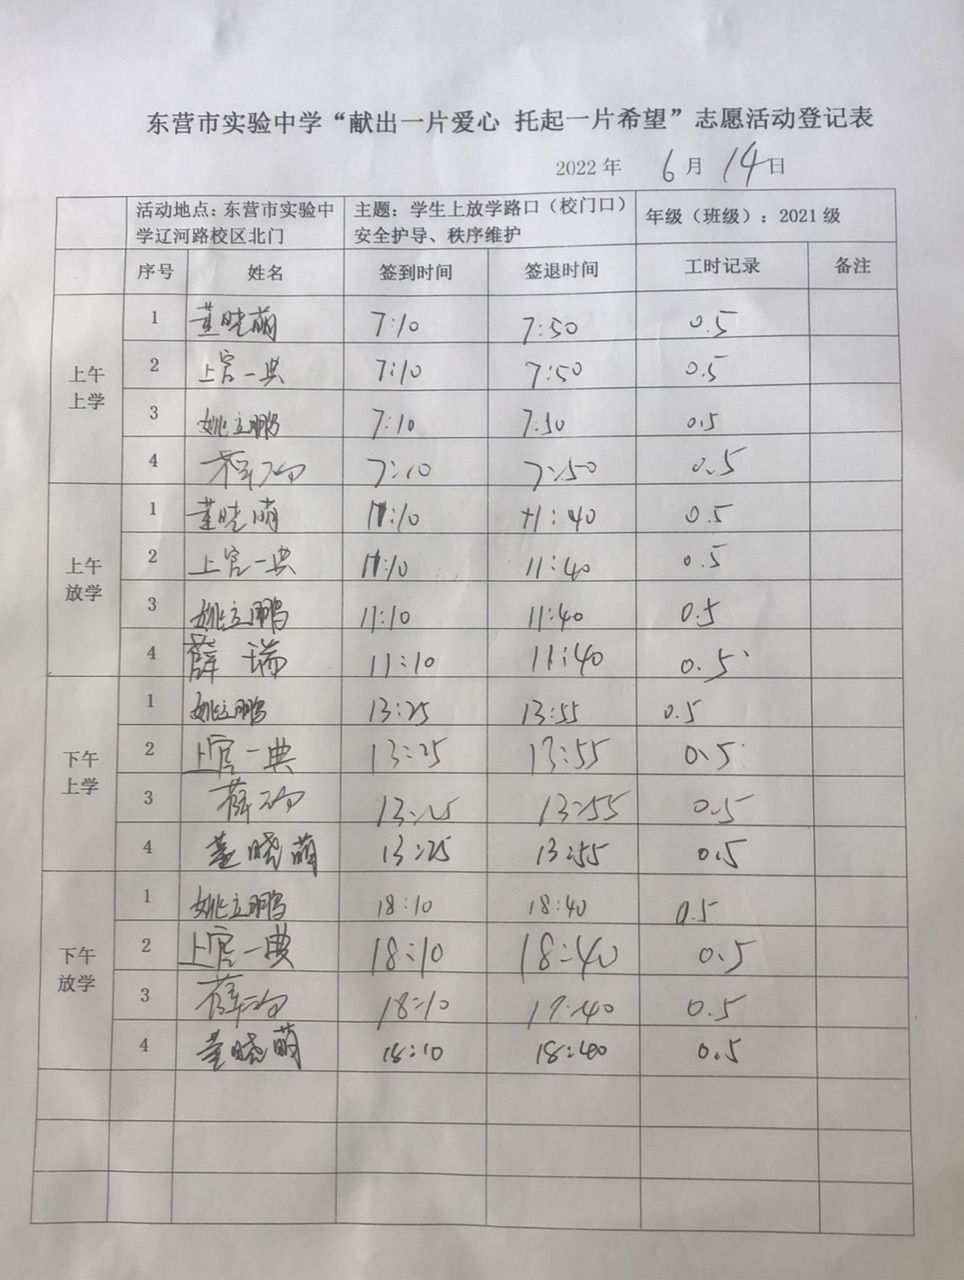 东营市实验中学“献出一片爱心 托起一片希望”志愿活动登记表
2022 年 6 月 14 日
活动地点：东营市实验中学辽河路校区北门 主题：学生上放学路口（校门口）安全护导、秩序维护 年级（班级）：2021 级
序号 姓名 签到时间 签退时间 工时记录 备注
上午上学
1 董晓萌 7:10 7:50 0.5
2 上官一典 7:10 7:50 0.5
3 姚立鹏 7:10 7:50 0.5
4 薛瑞 7:10 7:50 0.5
上午放学
1 董晓萌 11:10 11:40 0.5
2 上官一典 11:10 11:40 0.5
3 姚立鹏 11:10 11:40 0.5
4 薛瑞 11:10 11:40 0.5
下午上学
1 姚立鹏 13:25 13:55 0.5
2 上官一典 13:25 13:55 0.5
3 薛瑞 13:25 13:55 0.5
4 董晓萌 13:25 13:55 0.5
下午放学
1 姚立鹏 18:10 18:40 0.5
2 上官一典 18:10 18:40 0.5
3 薛瑞 18:10 18:40 0.5
4 董晓萌 18:10 18:40 0.5